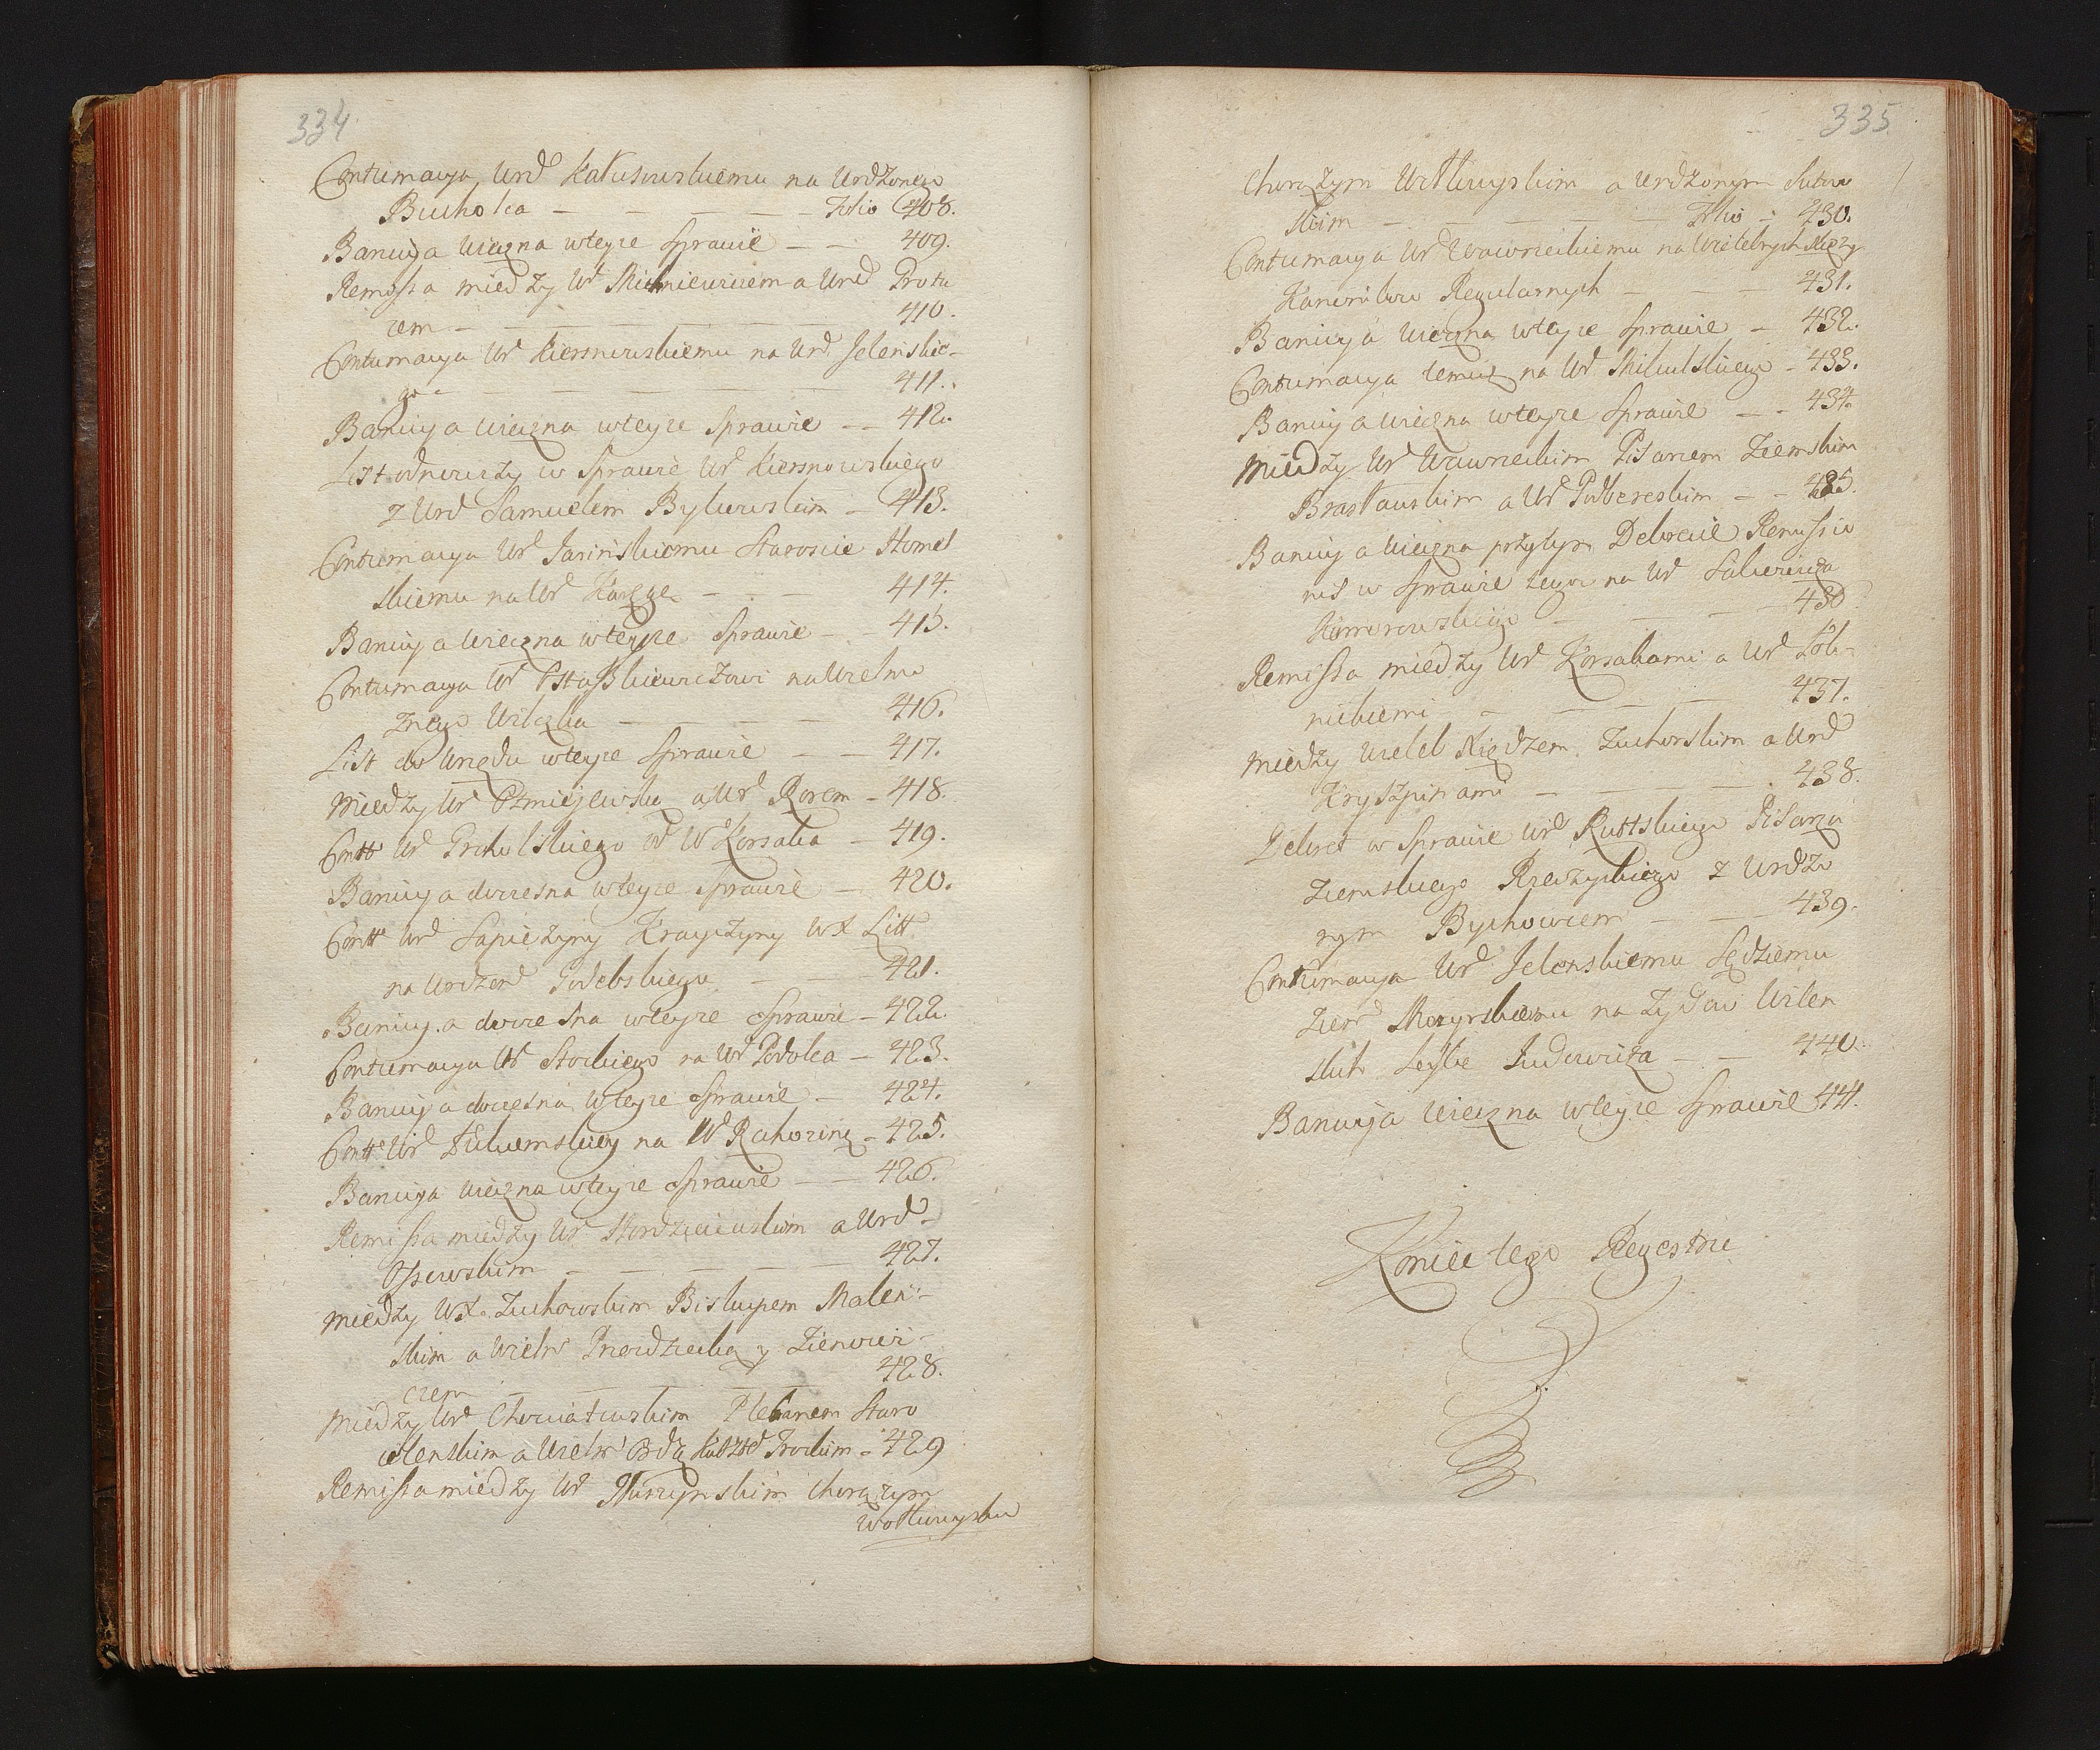 334
Contumacya Urd Kałusowskiemu na Urdzonego
Bucholca — — — — — Folio 408.
Banicya wieczna wteyże Sprawie — — 409.
Remissa między Ur Michniewiczem a Urd Protu
cem — — — — — 410.
Contumacya Ur Kiersnowskiemu na Urd Jelenskie-
go — — — — — 411.
Banicya wieczna wteyże Sprawie — — 412.
List odnowczy w Sprawie Ur Kiersnowskiego
z Urd Samuelem Bykowskim — 413.
Contumacya Ur Jasinskiemu Staroscie Homel
skiemu na Ur Karęgę — — — 414.
Banicya wieczna wteyże Sprawie — — 415.
Contumacya Ur Ostaszkiewiczowi na Wielmo
żnego Wilczka — — — — 416.
List do Urzędu wteyże Sprawie — — 417.
Między Ur Żmiejewską a Ur Rorem — 418.
Contt Ur Grocholskiego od W Korsaka — 419.
Banicya doczesna wteyże Sprawie — 420.
Contt Urd Sapieżyny Krayczyny WX Litt
na Urdzend Godebskiego — — 421.
Banicya doczesna wteyże Sprawie — 422.
Contumacya Ur Stockiego na Ur Podolca — 423.
Banicya doczesna wteyże Sprawie — 424.
Contt Ur na W Rahozinę — 425.
Banicya wieczna wteyże Sprawie — — 426.
Remissa między Ur Hordzieiewskim a Urd
Ossowskim — — — — — 427.
Między WX Zuchowskim Biskupem Maleń-
skim a Wielm Przezdziecką y Zienowi-
czem — — — — — 428.
Między Urd Chwiatowskim Plebanem Staro
a Wielm Trockim — 429
Remissa między Ur Chorążym
Wołkowysku
335
Chorążym Wołkowyskim a Urdzonym Sutow
skim — — — — — Folio — 430.
Contumacya Ur Wawrzeckiemu na Wielebnych Xięży
Kanoników Regularnych — — — 431.
Banicya wieczna wteyże Sprawie — 432.
Contumacya temuż na Ur Mikulskiego — 433.
Banicya wieczna wteyże Sprawie — — 434.
Między Ur Wawrzeckim Pisarzem Ziemskim
Brasławskim a Ur Podbereskim — — 435.
Banicya wieczna przytym Dekrecie Remissio
nis w Sprawie tegoż na Ur
Komorowskiego — — — — 436
Remissa między Ur Korsakami a Ur Łok-
nickiemi — — — — — 437.
Między Wieleb Xiędzem Zuchorskim a Urd
Kryszpinami — — — — — 438.
Dekret w Sprawie Urd Ruttskiego Pisarza
Ziemskiego Rzeczyckiego z Urdzo
nym Bychowcem — — — 439.
Contumacya Urd Jelenskiemu Sędziemu
Ziem Mozyrskiemu na Żydow Wilen
skich Leybę Judowicza — — 440.
Banicya wieczna wteyże Sprawie 441.
Koniec tego Regestru